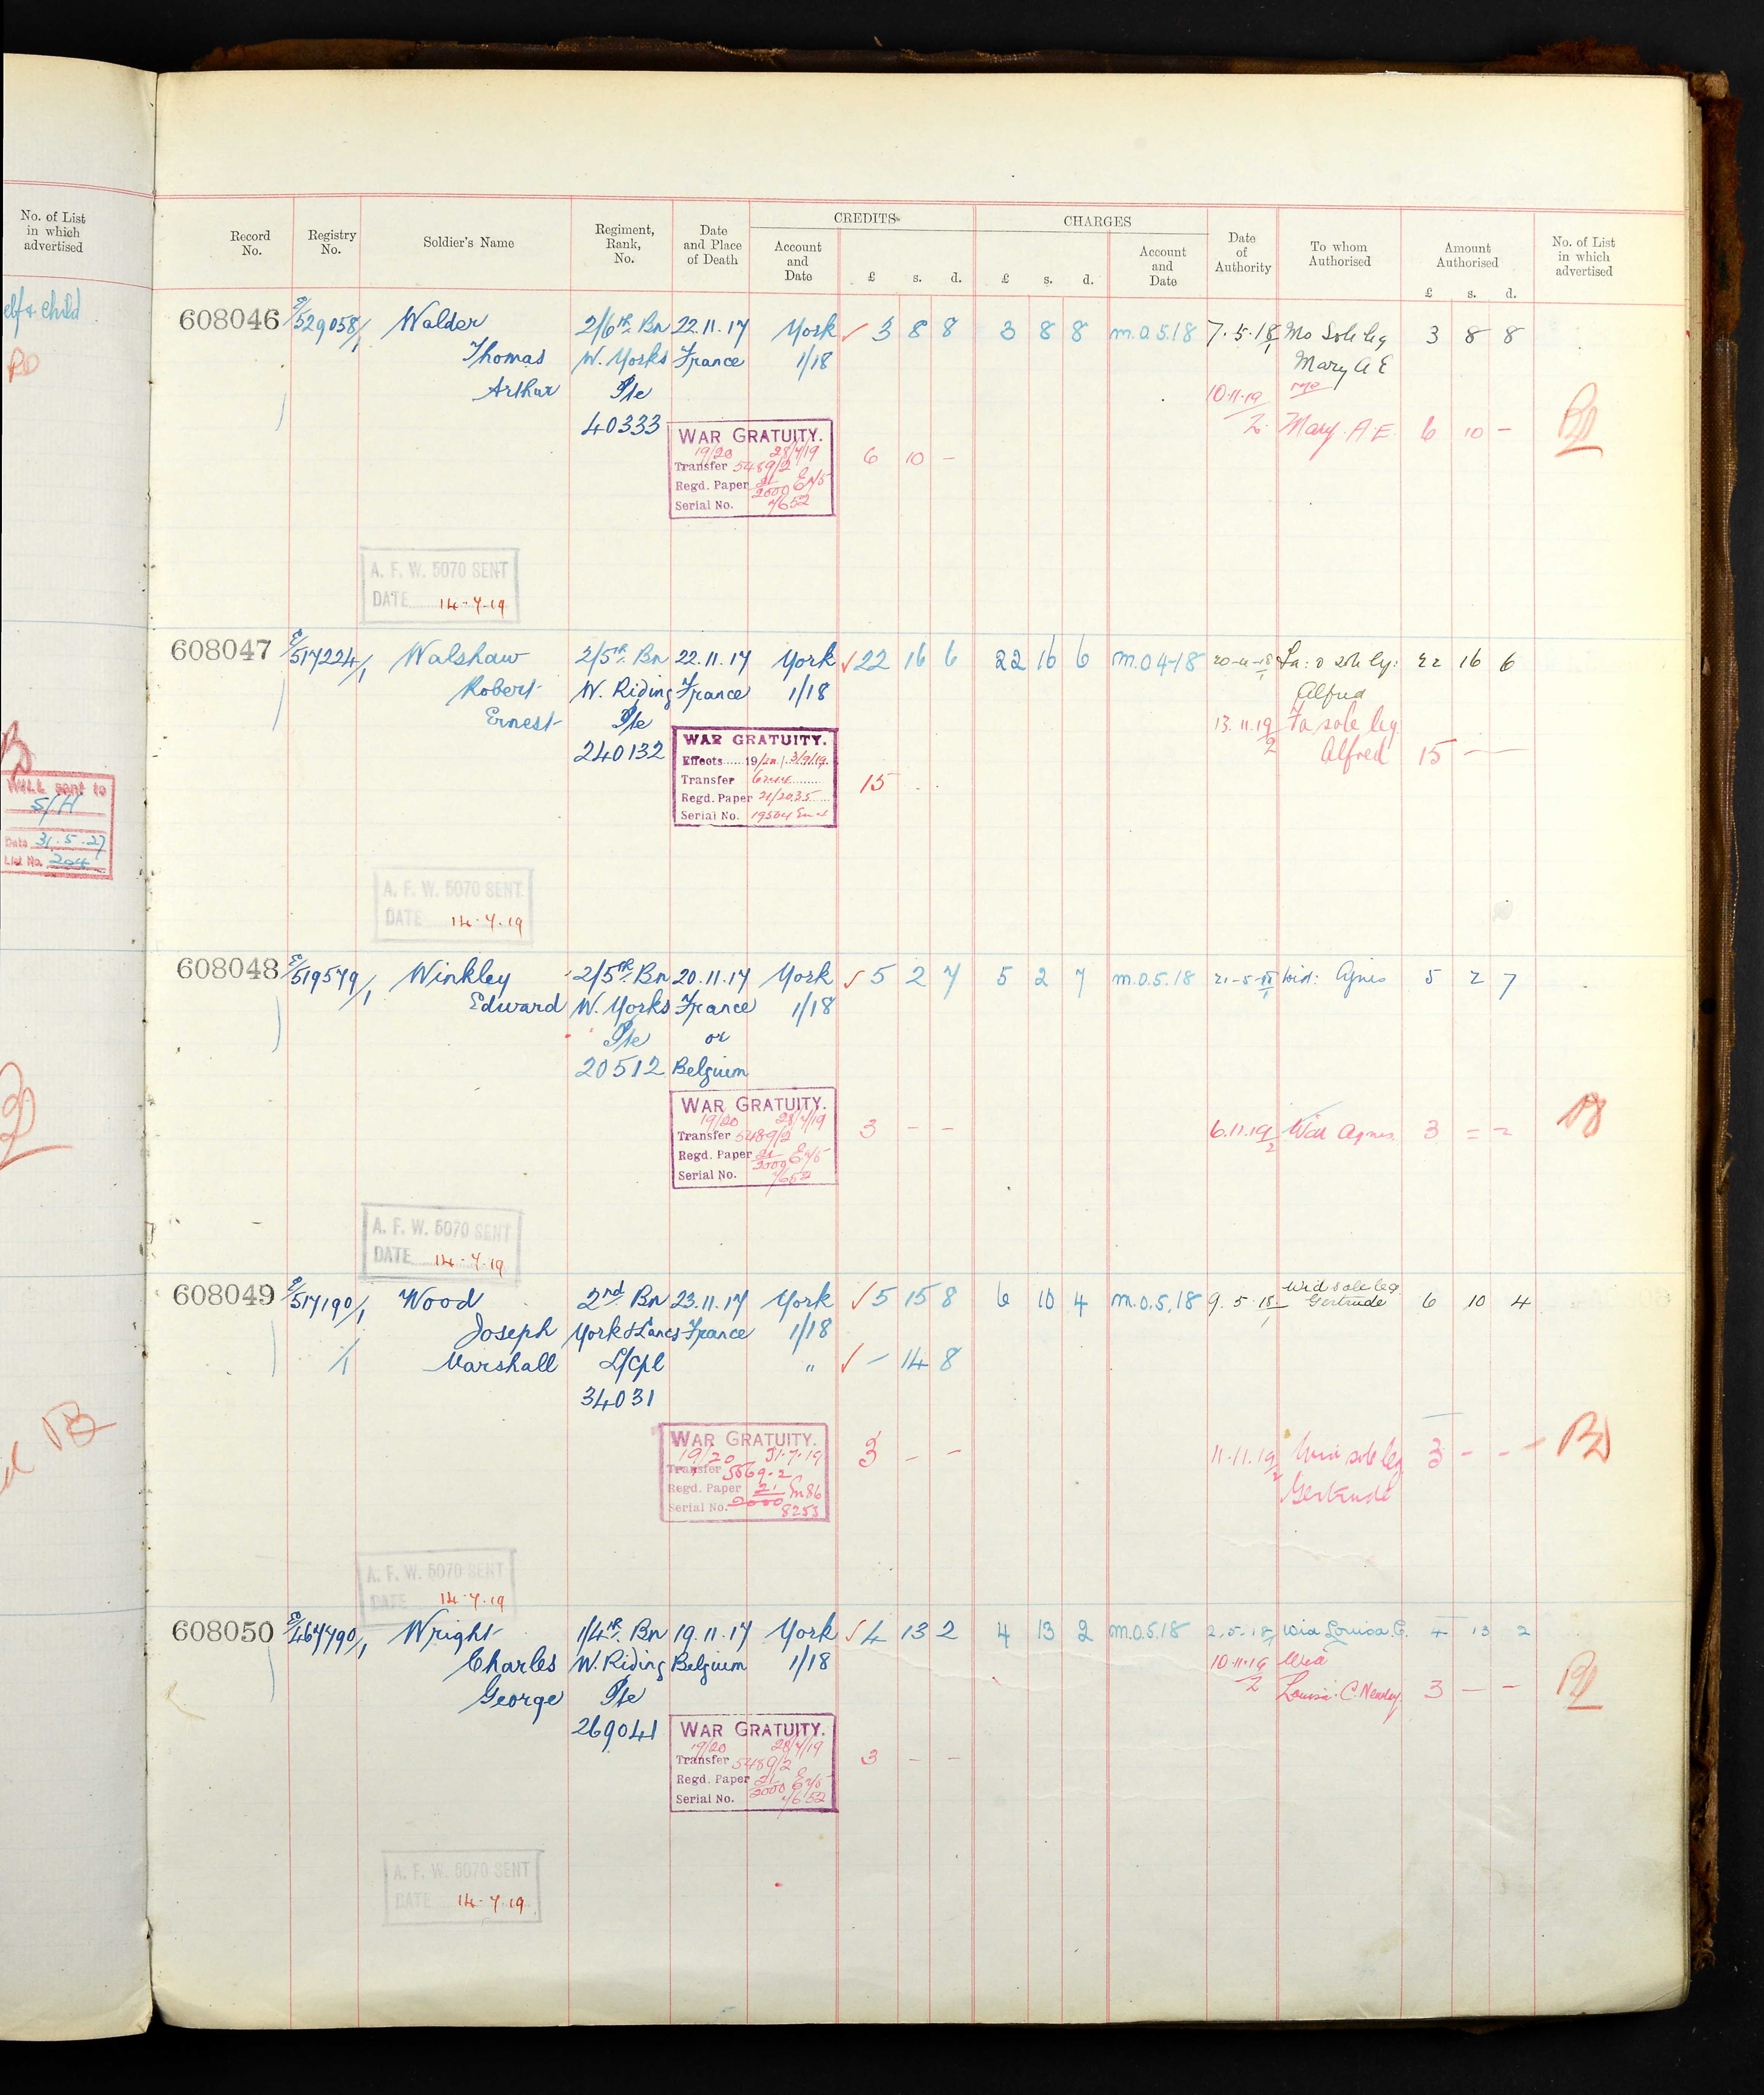 No. of List
in which
advertised
elf & child
WILL sent to
S/H
Date 31.5.27
List No. 204
CREDITS
CHARGES
Record No.
Registry No.
Soldier's Name
Regiment, Rank, No.
Date and Place of Death
Account and Date
£ s. d.
£ s. d.
Account and Date
Date of Authority
To whom Authorised
Amount Authorised
£ s. d.
No. of List in which advertised
608046 E/529058/1 Walder 2/6th Bn 22.11.17 York 3 8 8 3 8 8 m.0.5.18 7.5.18/1 Mo Sole leg 3 8 8
Thomas W. Yorks France 1/18 Mary A E
Arthur Pte 10.11.19/2 Mo
40333 Mary. A. E. 6 10 -
WAR GRATUITY. 6 10 -
19/20 28/7/19
Transfer 5489/2
Regd. Paper 21/2000 E 7/5
Serial No. 7652
A. F. W. 5070 SENT
DATE 14.7.19
608047 E/517224/1 Walshaw 2/5th Bn 22.11.17 York 22 16 6 22 16 6 m.0 4-18 Fa: Alfred 22 16 6
Robert W. Riding France 1/18
Ernest Pte 13.11.19/2 Fa sole leg
240132 Alfred 15 -
WAR GRATUITY. 15
Effects 19/20 3/9/19
Transfer
Regd. Paper 21/2035
Serial No. 19504
A. F. W. 5070 SENT
DATE 14.7.19
608048 E/519579/1 Winkley 2/5th Bn 20.11.17 York 5 2 7 5 2 7 m.0.5.18 21-5-18/1 Wid: Agnes 5 2 7
Edward W. Yorks France 1/18
Pte or
20512 Belgium
WAR GRATUITY. 3 - - 6.11.19/2 Wid Agnes 3 - -
19/20 28/7/19
Transfer 5489/2
Regd. Paper 21/2000 E 7/5
Serial No. 7652
A. F. W. 5070 SENT
DATE 14.7.19
608049 E/517190/1 Wood 2nd Bn 23.11.17 York 5 15 8 6 10 4 m.0.5.18 9.5.18/1 Wid sole leg Gertrude 6 10 4
Joseph York & Lancs France 1/18
Marshall L/Cpl " - 14 8
34031
WAR GRATUITY. 3 - - 11.11.19/2 Wid sole leg 3 - -
19/20 31.7.19 Gertrude
Transfer 5569.2
Regd. Paper 21/2000 Em 86
Serial No. 8253
A. F. W. 5070 SENT
DATE 14.7.19
608050 E/467790/1 Wright 1/4th Bn 19.11.17 York 4 13 2 4 13 2 m.0.5.18 2.5.18/1 Wid Louisa. C. 4 13 2
Charles W. Riding Belgium 1/18 10.11.19/2 Wid
George Pte Louisa. C. 3 - -
269041
WAR GRATUITY. 3 - -
19/20 28/7/19
Transfer 5489/2
Regd. Paper 21/2000 E 7/5
Serial No. 7652
A. F. W. 5070 SENT
DATE 14.7.19